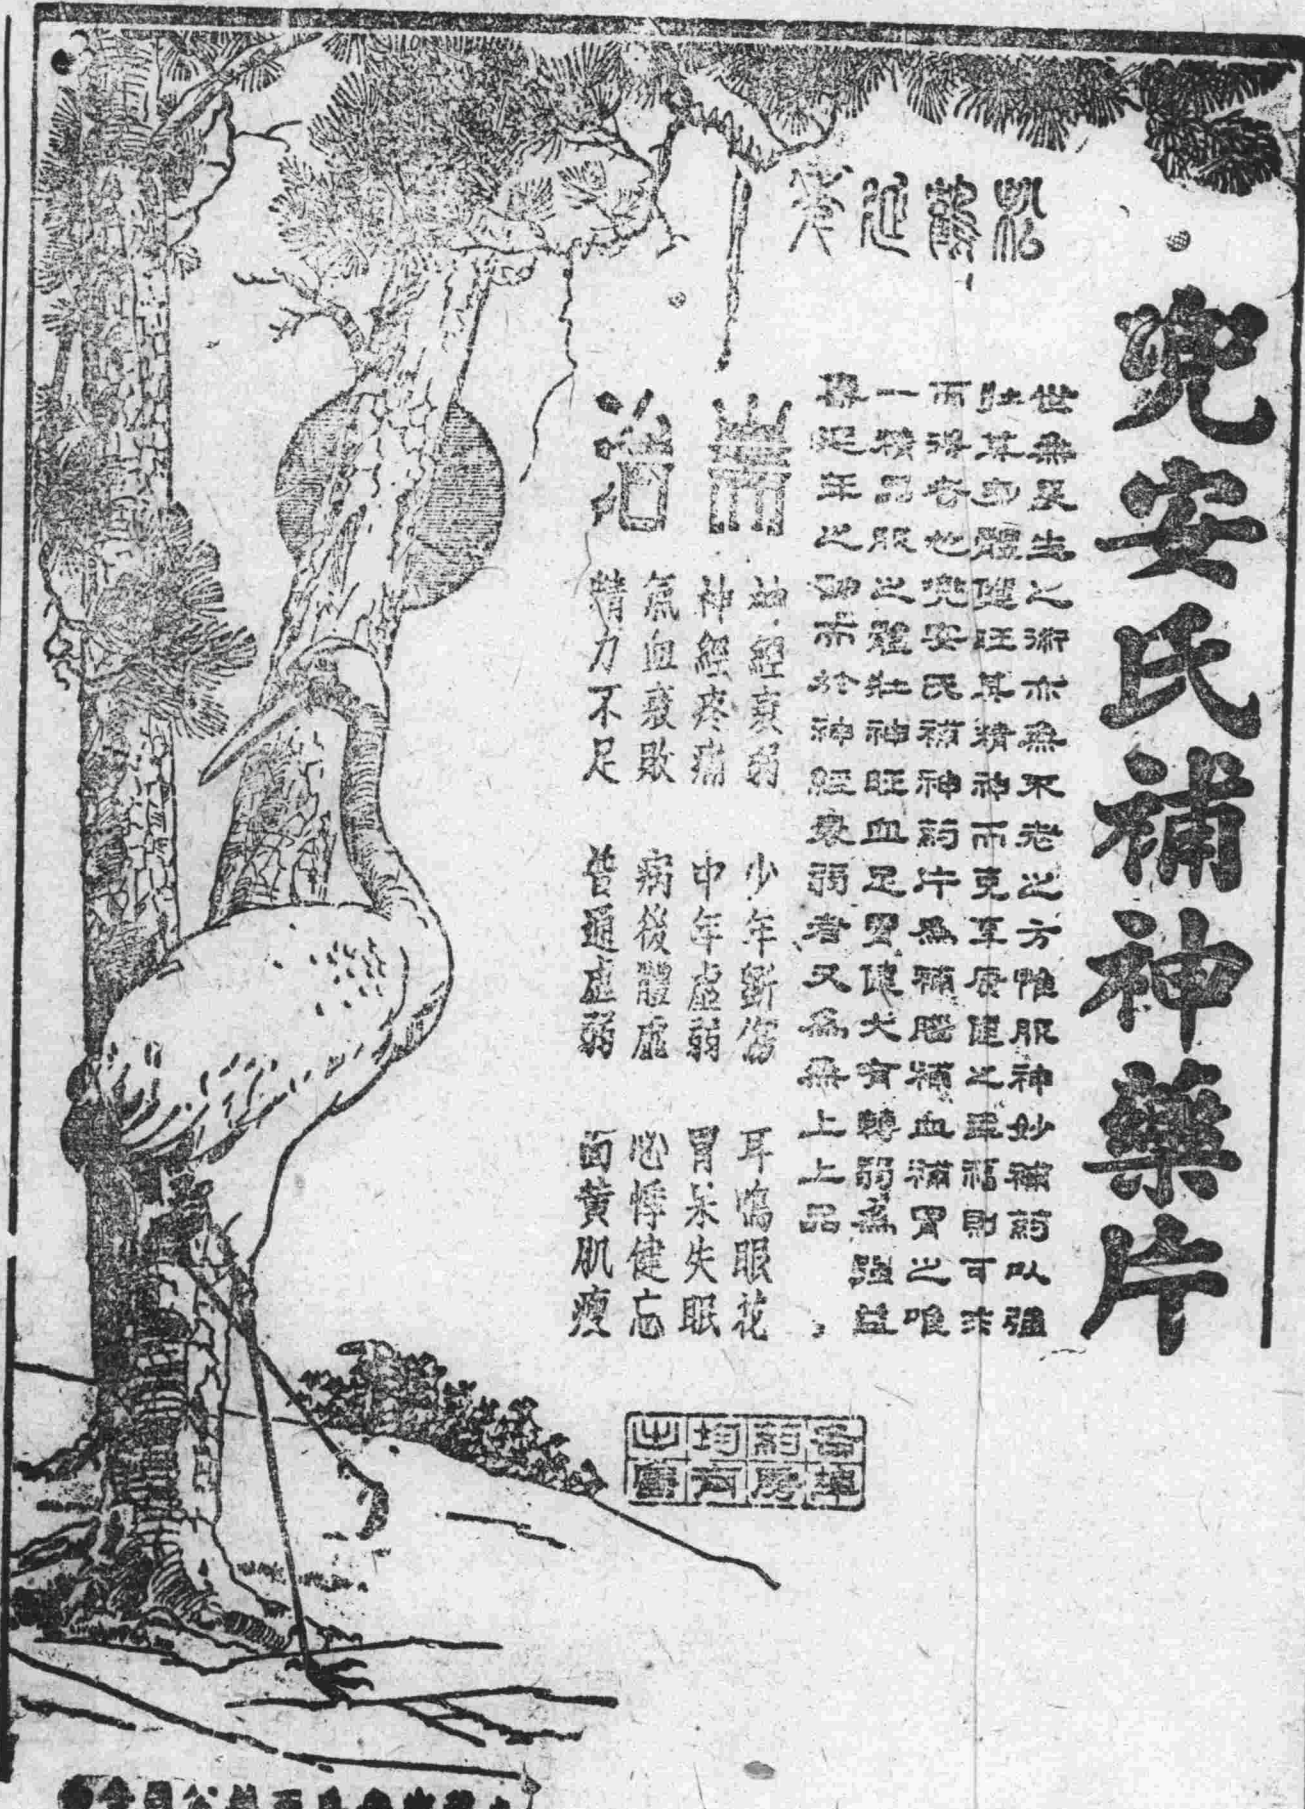 兜安氏補神藥片
松鶴延年
世無長生之術亦無不老之方惟服神妙補藥以強
壯其身體健旺其精神而克享康健之幸福則可求
而得者也兜安氏補神葯片為補腦補血補胃之唯
一積品服之體壯神旺血足胃健大有轉弱為強益
壽延年之功而於神經衰弱者又為無上上品
主治
神經衰弱 少年斲傷 耳鳴眼花
神經疼痛 中年虛弱 胃呆失眠
氣血衰敗 病後體虛 心悸健忘
精力不足 普通虛弱 面黃肌瘦
各埠
葯房
均有
出售